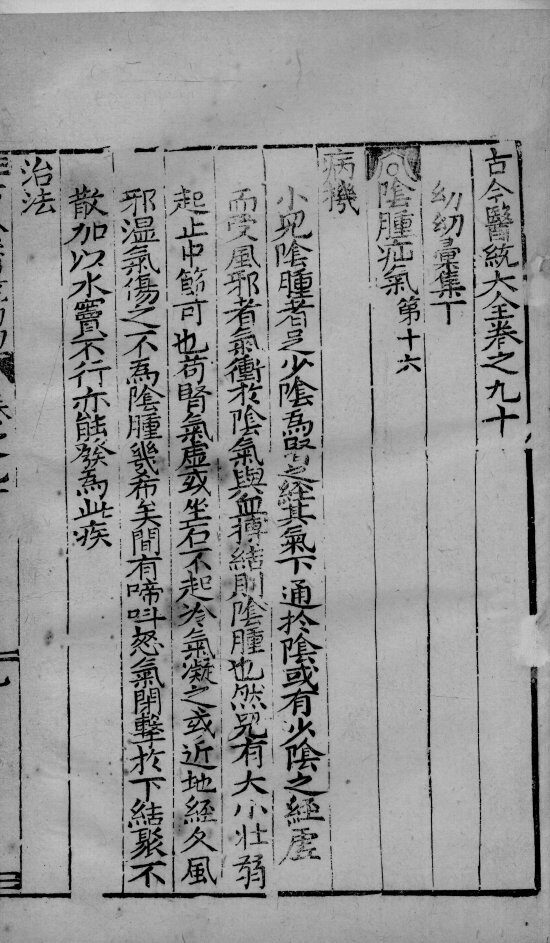 古今醫統大全卷之九十
幼幼彙集下
陰腫疝氣第十六
病機
小兒陰腫者足少陰為腎之經其氣下通於陰或有少陰之經虛
而受風邪者氣衝於陰氣與血搏結則陰腫也然兒有大小壯弱
起止中節可也苟腎氣虛或坐石不起冷氣凝之或近地經久風
邪溫氣傷之不為陰腫幾希矣間有啼呌怒氣閉擊於下結聚不
散加以水竇不行亦能發為此疾
治法